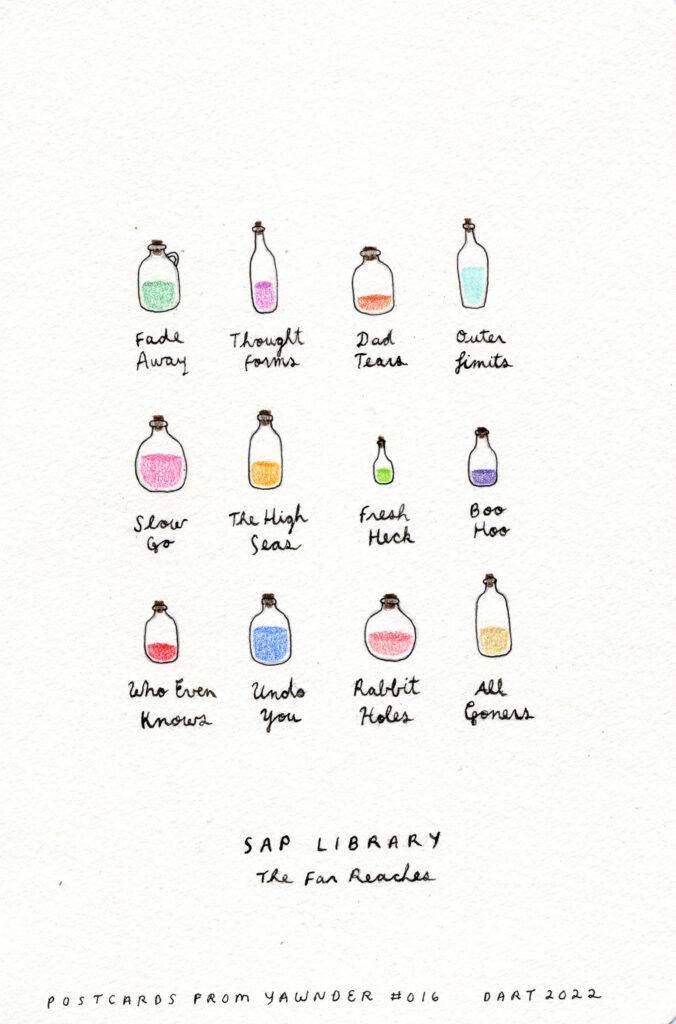 Fade
Away
Thought
Forms
Dad
Tears
Outer
Limits
Slow
Go
The High
Seas
Fresh
Heck
Boo
Hoo
Who Even
Knows
Undo
You
Rabbit
Holes
All
Goners
SAP LIBRARY
The Far Reaches
POSTCARDS FROM YAWNDER #016 DART 2022